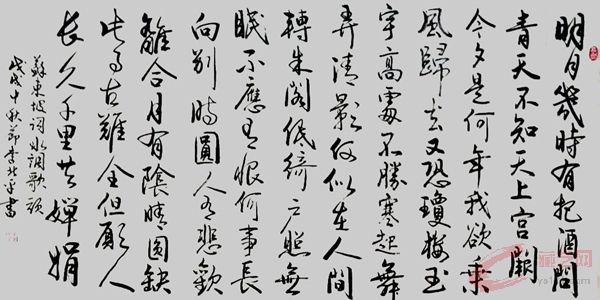 明月幾時有把酒問
青天不知天上宮闕
今夕是何年我欲乘
風歸去又恐瓊樓玉
宇高處不勝寒起舞
弄清影何似在人間
轉朱閣低綺户照無
眠不應有恨何事長
向別時圓人有悲歡
離合月有陰晴圓缺
此事古難全但願人
長久千里共嬋娟
蘇東坡詞水調歌頭
戊戌中秋節李書